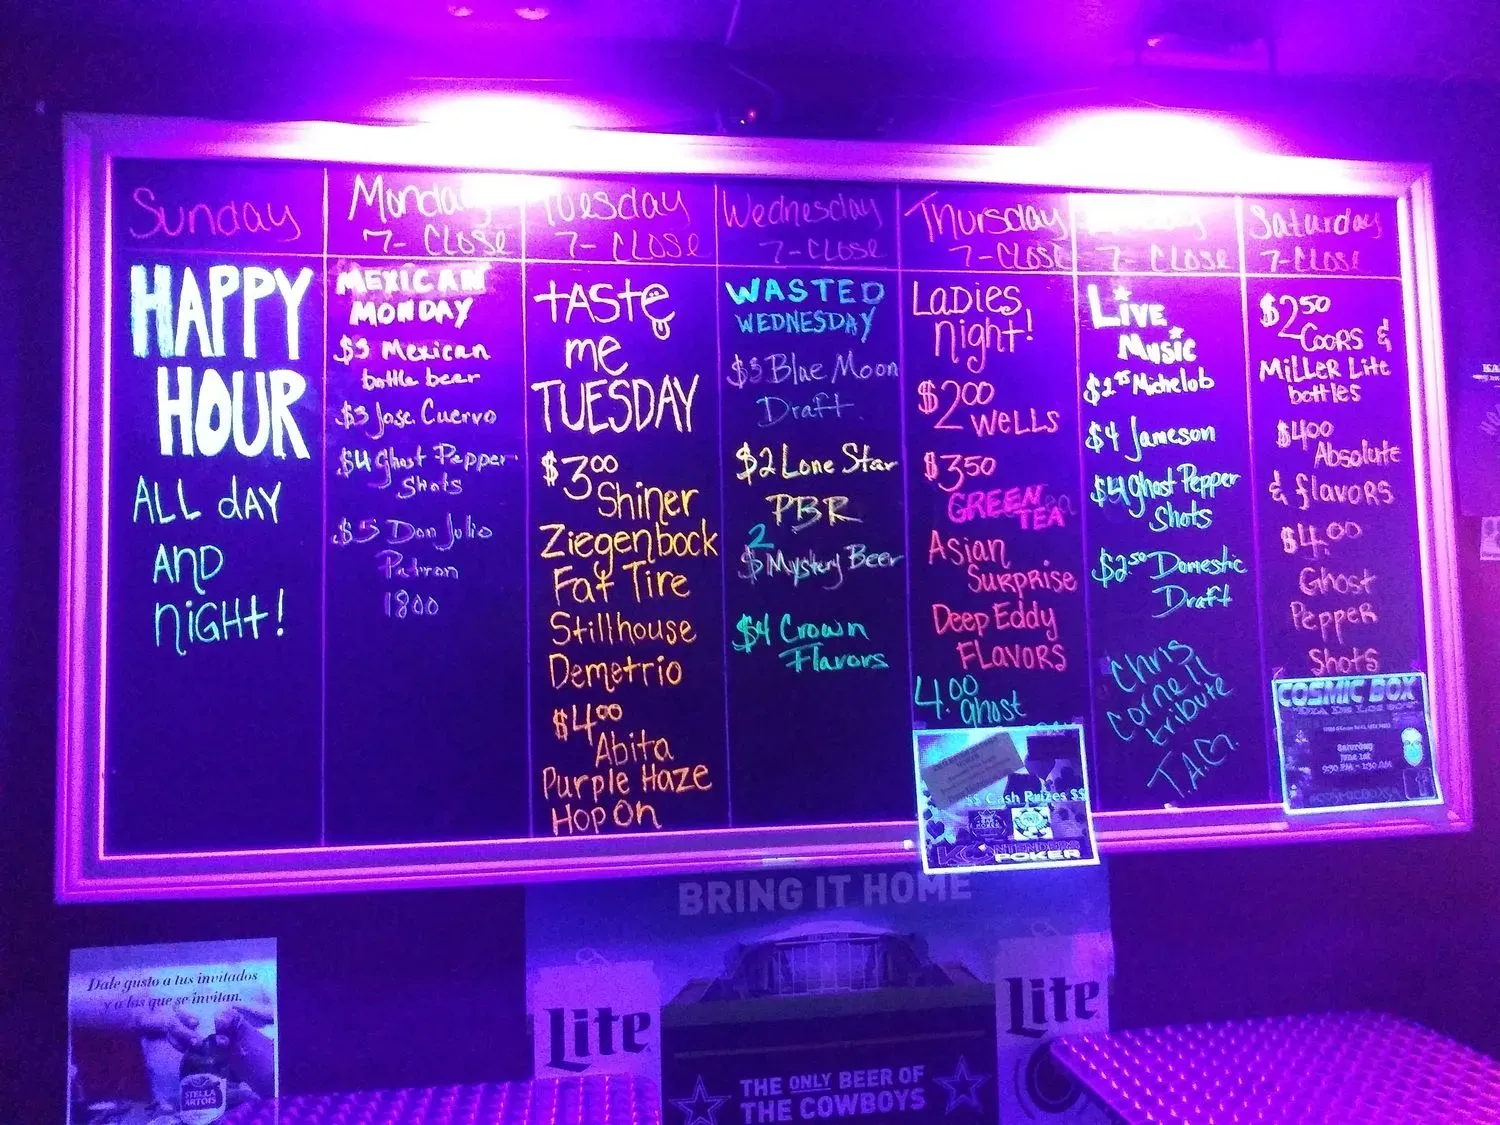 Sunday
HAPPY
HOUR
ALL dAY
AND
NIGHT!
Monday
7- CLOSE
MEXICAN
MONDAY
$3 Mexican
bottle beer
$3 Jose Cuervo
$4 Ghost Pepper
Shots
$5 Don Julio
Patron
1800
Tuesday
7- CLOSE
TASTe
me
TUESDAY
$300
Shiner
Ziegenbock
Fat Tire
Stillhouse
Demetrio
$400
Abita
Purple Haze
Hop On
Wednesday
7- CLOSE
WASTED
WEDNESDAY
$3 Blue Moon
Draft.
$2 Lone Star
PBR
2
$ Mystery Beer
$4 Crown
Flavors
Thursday
7-CLOSE
LAdiES
night!
$200
WELLS
$350
GREEN
TEA
Asian
Surprise
Deep Eddy
FLAVORS
4.00
Ghost
$$ Cash Prizes $$
KONTENDERS
POKER
7- CLOSE
LIVE
Music
$2 75 Michelob
$4 Jameson
$4 Ghost Pepper
Shots
$2 50 Domestic
Draft
Chris
Cornell
tribute
T.A.G.
Saturday
7-CLOSE
$2 50
COORS &
MiLLER Lite
bottles
$400
Absolute
& flavors
$4.00
Ghost
Pepper
Shots
COSMIC BOX
Saturday
June 1st
9:30 PM - 1:30 AM
BRING IT HOME
Lite
Lite
THE ONLY BEER OF
THE COWBOYS
Dale gusto a tus invitados
y a los que se invitan.
STELLA
ARTOIS